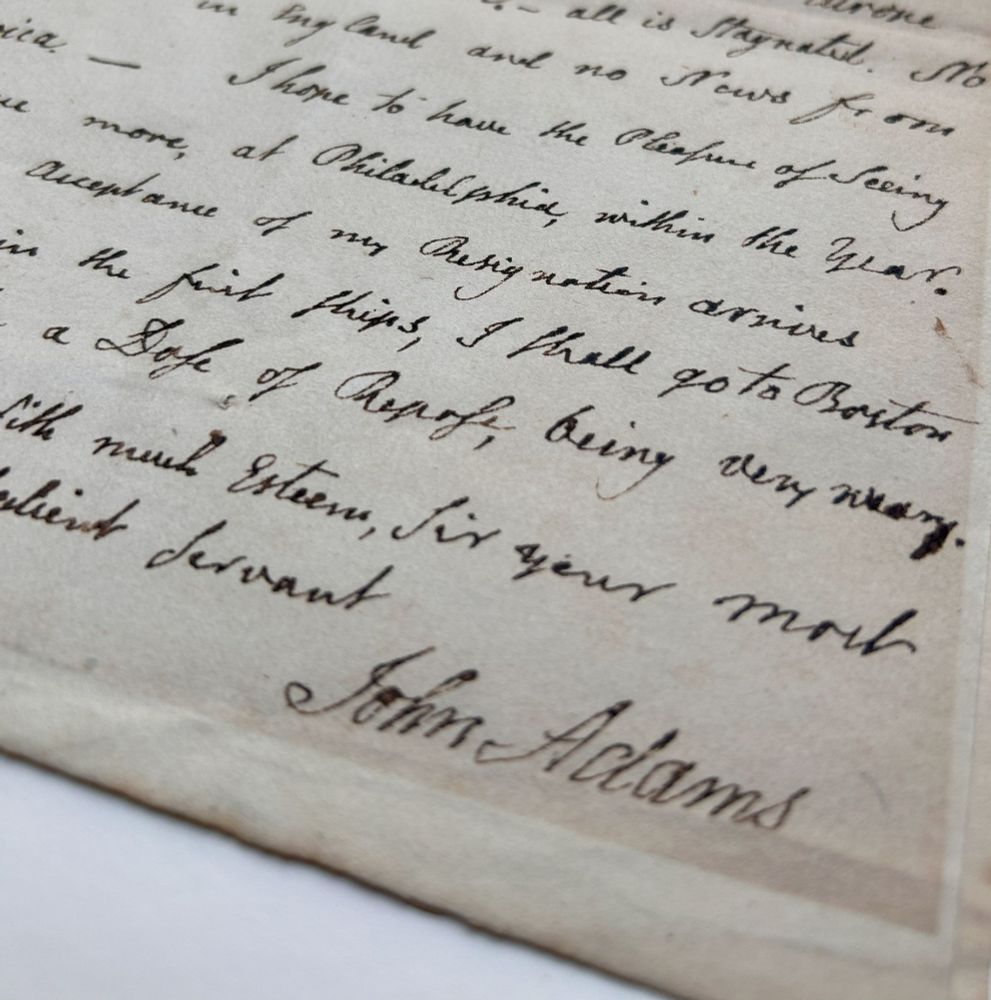 all is Stagnated. No
in England and no News from
I hope to have the Pleasure of Seeing
more, at Philadelphia, within the Year.
Acceptance of my Resignation arrives
in the first ships, I shall go to Boston
a Dose of Repose, being very weary.
With much Esteem, Sir your most
Servant
John Adams